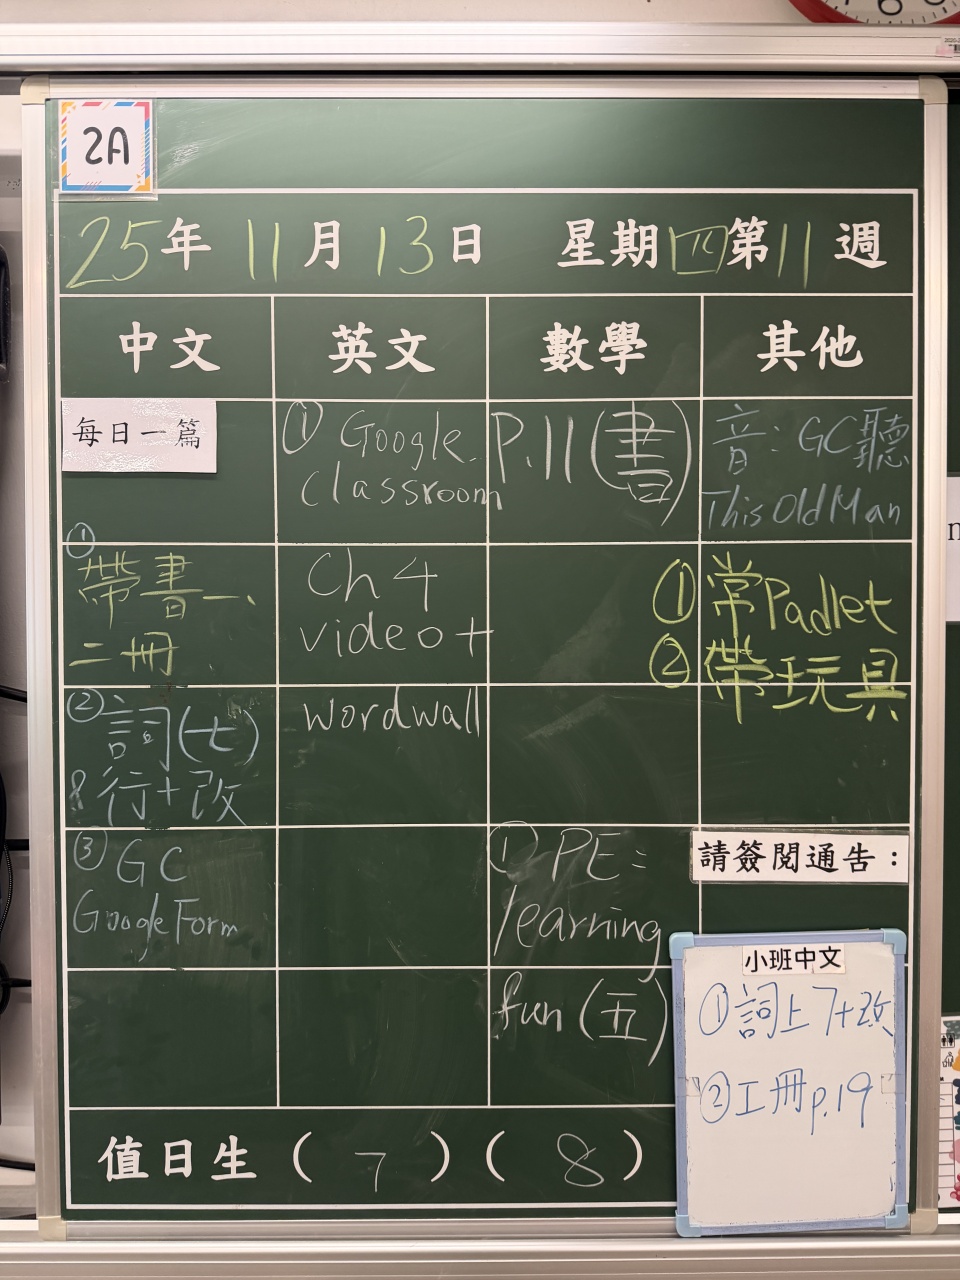 2A
25年 11月 13日 星期四第11週
中文 英文 數學 其他
每日一篇
①帶書一、
二冊
②詞(七)
8行+改
③GC
Google Form
① Google
Classroom
Ch 4
video+
wordwall
P.11(書)
① PE:
learning
fun(五)
音:GC聽
This Old Man
①常Padlet
②帶玩具
請簽閱通告:
小班中文
①詞上7+改
②工冊p.19
值日生(7)(8)